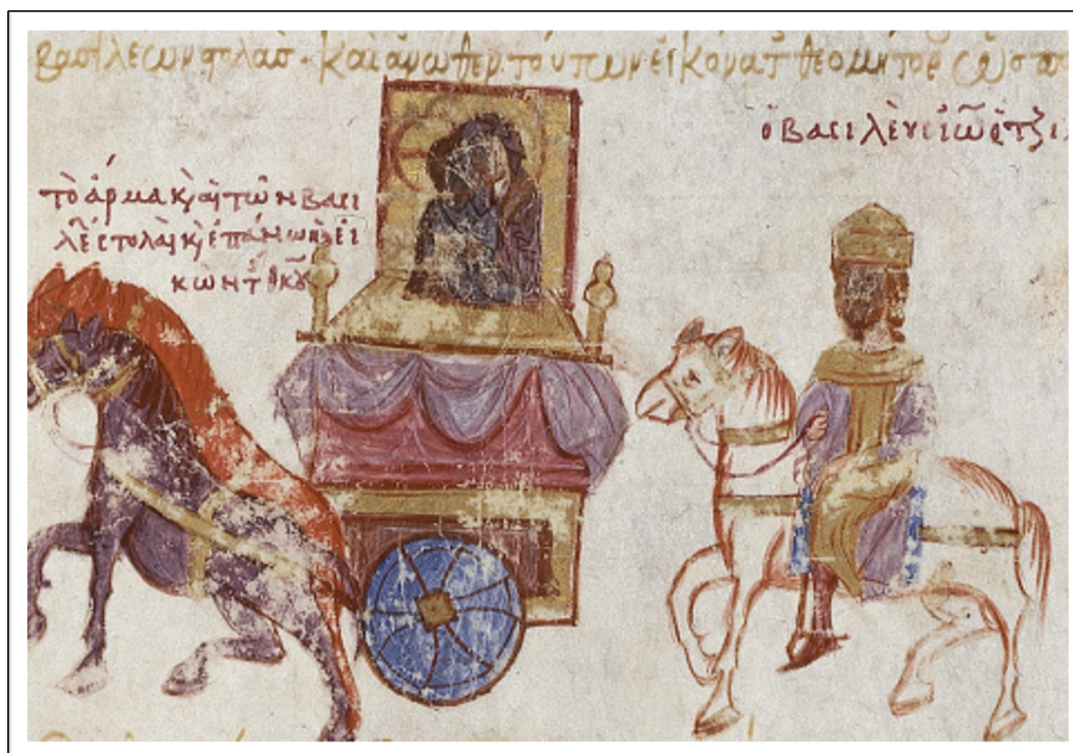 βασιλέων στολὰσ · καὶ ἄνωθεν τούτων εἰκόνα τ θεομήτορ
ὁ βασιλεὺς ἰῶ ὁ τζι
τὸ ἅρμα κ αἱ τῶν βασι
λέ στολαὶ κ ἐπάνω εἰ
κὼν τ θκου